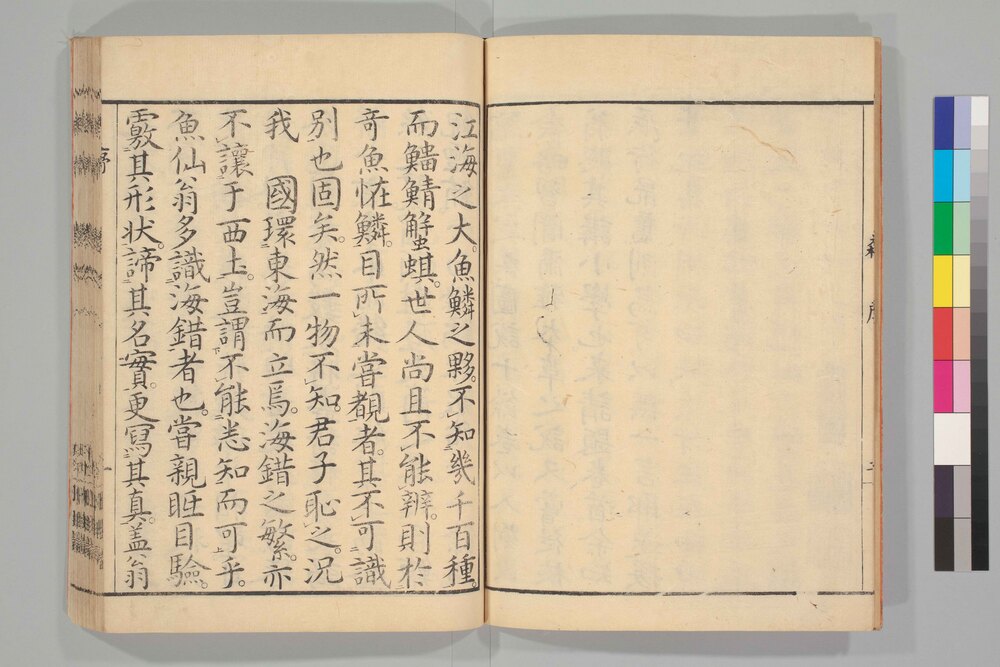 江海之大。魚鱗之夥。不知幾千百種。
而鱕鯖蠏蜞。世人尚且不能辨。則於
奇魚恠鱗。目所未嘗覩者。其不可識
別也固矣。然一物不知。君子恥之。況
我 國環東海而立焉。海錯之繁。亦
不讓于西土。豈謂不能悉知而可乎。
魚仙翁多識海錯者也。嘗親眂目驗。
覈其形状。諦其名實。更寫其真。盖翁
序